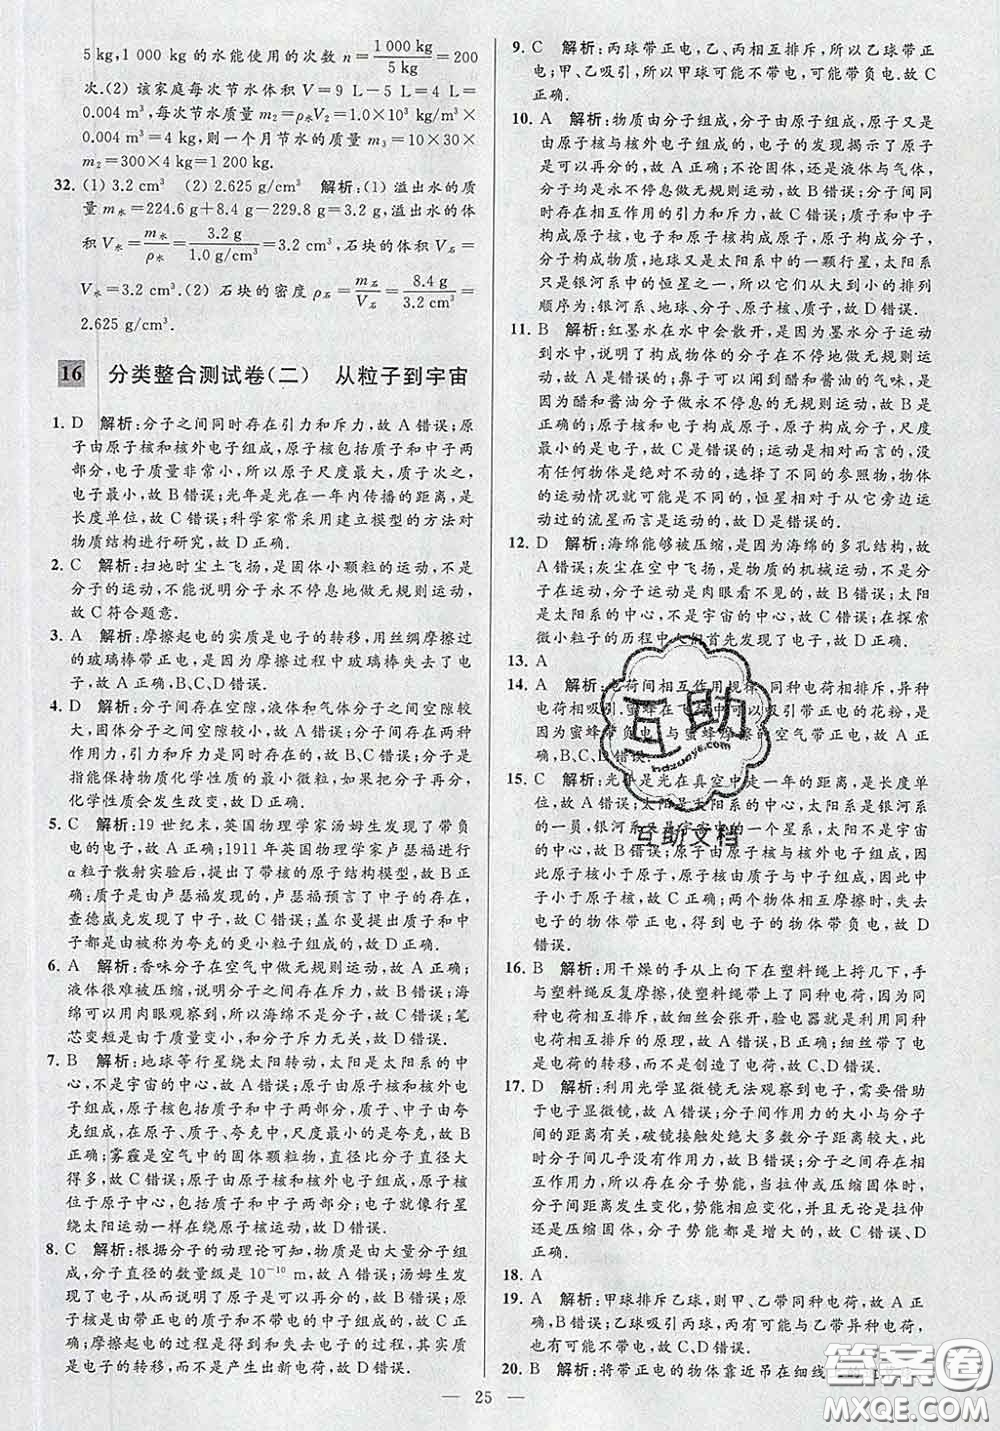 5 kg,1 000 kg 的水能使用的次数 n=1 000 kg/5 kg=200
次.(2) 该家庭每次节水体积 V=9 L-5 L=4 L=
0.004 m³,每次节水质量 m₂=ρ水V=1.0×10³ kg/m³×
0.004 m³=4 kg,则一个月节水的质量 m₃=10×30×
m₂=300×4 kg=1 200 kg.
32. (1) 3.2 cm³ (2) 2.625 g/cm³ 解析:(1) 溢出水的质
量 m水=224.6 g+8.4 g-229.8 g=3.2 g,溢出水的体
积 V水=m水/ρ水=3.2 g/1.0 g/cm³=3.2 cm³,石块的体积 V石=
V水=3.2 cm³.(2) 石块的密度 ρ石=m石/V石=8.4 g/3.2 cm³=
2.625 g/cm³.
16 分类整合测试卷(二) 从粒子到宇宙
1. D 解析:分子之间同时存在引力和斥力,故 A 错误;原
子由原子核和核外电子组成,原子核包括质子和中子两
部分,电子质量非常小,所以原子尺度最大,质子次之,
电子最小,故 B 错误;光年是光在一年内传播的距离,是
长度单位,故 C 错误;科学家常采用建立模型的方法对
物质结构进行研究,故 D 正确.
2. C 解析:扫地时尘土飞扬,是固体小颗粒的运动,用肉
眼可以看得到,不能说明分子永不停息地做无规则运动,
故 C 符合题意.
3. A 解析:摩擦起电的实质是电子的转移,用丝绸摩擦过
的玻璃棒带正电,是因为摩擦过程中玻璃棒失去了电
子,故 A 正确,B、C、D 错误.
4. D 解析:分子间存在空隙,液体和气体分子间空隙较
大,固体分子间空隙较小,故 A 错误;分子间存在两种
作用力,引力和斥力是同时存在的,故 B、C 错误;分子是
指能保持物质化学性质的最小微粒,如果把分子再分,
化学性质会发生改变,故 D 正确.
5. C 解析:19 世纪末,英国物理学家汤姆生发现了带负
电的电子,故 A 错误;1911 年英国物理学家卢瑟福进行
α粒子散射实验后,提出了带核的原子结构模型,故 B 错
误;质子是卢瑟福发现的,卢瑟福预言了中子的存在,
查德威克发现了中子,故 C 错误;盖尔曼提出质子和中
子都是由被称为夸克的更小粒子组成的,故 D 正确.
6. A 解析:香味分子在空气中做无规则运动,故 A 正确;
液体很难被压缩,说明分子之间存在斥力,故 B 错误;海
绵可以用肉眼观察到,所以海绵不是分子,故 C 错误;笔
芯变短是由于质量变小,和分子斥力无关,故 D 错误.
7. B 解析:地球等行星绕太阳转动,太阳是太阳系的中
心,不是宇宙的中心,故 A 错误;原子由原子核和核外电
子组成,原子核包括质子和中子两部分,质子、中子由夸
克构成,在原子、质子、夸克中,尺度最小的是夸克,故 B
正确;雾霾是空气中的固体颗粒物,质量和体积比分子大
得多,故 C 错误;原子结构与太阳系十分相似,它的中心是
位于原子中心,包括质子和中子两部分,电子就像行星
绕太阳运动一样在绕原子核运动,故 D 错误.
8. C 解析:根据分子的动理论可知,物质是由大量分子组
成,分子直径的数量级是 10⁻¹⁰ m,故 A 错误;汤姆生发现了
电子,从而说明了原子是可以再分的,故 B 错误;原子核
是由带正电的质子和不带电的中子组成的,故 C 正确;
摩擦起电的过程是得到和失去电子的过程,其实质
是电子的转移,而不是产生出新电荷,故 D 错误.
9. C 解析:丙球带正电,乙、丙相互排斥,所以乙球带正
电;甲、乙吸引,所以甲球可能不带电,可能带负电.故 C
正确.
10. A 解析:物质由分子组成,分子由原子组成,原子又是
由原子核与核外电子组成的,电子的发现揭示了原子
是可以再分的,故 A 正确;不论固体、还是液体与气体,
分子均是永不停息做无规则运动,故 B 错误;分子间同
时存在相互作用的引力和斥力,故 C 错误;质子和中子
构成原子核,电子和原子核构成原子,原子构成分子,
分子构成物质,地球又是太阳系中的一颗行星,太阳系
是银河系中的恒星之一,所以它们从大到小的排列
顺序为:银河系、地球、分子、原子核、质子,故 D 错误.
11. B 解析:红墨水在水中会散开,是因为墨水分子运动
到水中,说明构成物体的分子在永不停息地运动,故 A
错误;构成物体的分子永不停息地做无规则运动,
醋和酱油具有挥发性,鼻子可以闻到醋和酱油的气味,是
因为醋和酱油分子做永不停息的无规则运动,故 B
正确;原子核和电子构成原子,原子构成分子,尺度
最小的是电子,故 C 错误;运动是绝对的,静止是相对的,
没有任何物体是绝对不动的,选择了不同的参照物,物体
的运动情况就可能是不同的,恒星相对于从它旁边运动
过的流星而言是运动的,故 D 是错误的.
12. D 解析:海绵能够被压缩,是因为海绵的多孔结构,故
A 错误;灰尘在空中飞扬,是物质的机械运动,不是分子
运动,分子运动是肉眼看不见的,故 B 错误;太阳是
太阳系的中心,不是宇宙的中心,故 C 错误;在探索
微小粒子的历程中人们首先发现了电子,故 D 正确.
13. A
14. A 解析:电荷间相互作用规律:同种电荷相排斥,异种
电荷相吸引.蜜蜂在飞行中可以吸引带正电的花粉,是
因为蜜蜂带负电,与蜜蜂摩擦的空气带正电,故 A
正确,B、C、D 错误.
15. C 解析:光年是光在真空中走一年的距离,是长度单
位,故 A 错误;太阳是太阳系的中心,太阳系是银河系
的一员,银河系是宇宙中的一个星系,太阳不是宇宙
的中心,故 B 错误;原子由原子核与核外电子组成,原子
核比原子小于原子,原子核由质子和中子组成,因此质
子、中子小于原子核,故 C 正确;两个物体相互摩擦时,失去
电子的物体带正电,得到电子的物体带负电,故 D
错误.
16. B 解析:用干燥的手从上向下在塑料绳上捋几下,手
与塑料绳反复摩擦,使塑料绳带上了同种电荷,因同种
电荷相互排斥,故细丝会张开,验电器就是利用同种电
荷相互排斥的原理,故 A 错误,B 正确;细丝带了电,是
电荷的转移,而不是创造了电荷,故 C、D 错误.
17. D 解析:利用光学显微镜无法观察到电子,需要借助
于电子显微镜,故 A 错误;分子间作用力的大小与分子
间的距离有关,破镜接触处绝大多数分子距离较大,分
子间几乎没有作用力,故 B 错误;分子之间存在相
互作用力,所以分子间存在分子势能,当拉伸或压缩时,
分子间距离发生变化,势能相应变化,并且无论是拉伸
还是压缩固体,分子势能都是增大的,故 C 错误,D 正确.
18. A
19. A 解析:甲球排斥乙球,则甲、乙带同种电荷,故 A 正
确,B 错误;乙球吸引丙球,可能是丙与乙带异种电荷,
也可能丙不带电,故 C、D 错误.
20. B 解析:将带正电的物体靠近吊在细线
互助
hdzuoye.com
互助文档
答案圈
MXQE.COM
25